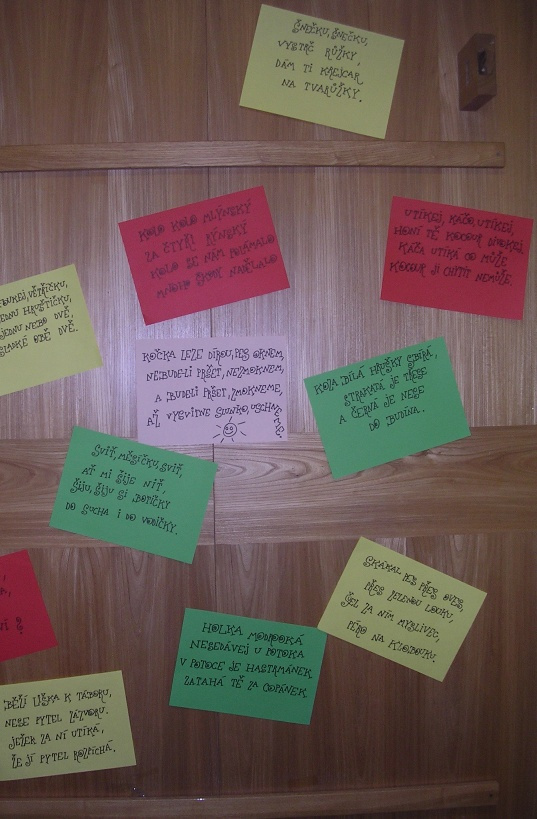 ŠNEČKU, ŠNEČKU,
VYSTRČ RŮŽKY,
DÁM TI KREJCAR
NA TVARŮŽKY.
KOLO KOLO MLÝNSKÝ
ZA ČTYŘI RÝNSKÝ
KOLO SE NÁM POLÁMALO
MNOHO ŠKODY NADĚLALO
UTÍKEJ, KÁČO, UTÍKEJ,
HONÍ TĚ KOCOUR DIVOKEJ.
KÁČA UTÍKÁ CO MŮŽE
KOCOUR JI CHYTIT NEMŮŽE.
FOUKEJ, VĚTŘÍČKU,
JEDNU HRUŠTIČKU,
JEDNU NEBO DVĚ,
SLADKÉ OBĚ DVĚ.
KOČKA LEZE DÍROU, PES OKNEM,
NEBUDE-LI PRŠET, NEZMOKNEM,
A BUDE-LI PRŠET, ZMOKNEME,
AŽ VYSVITNE SLUNKO, USCHNEME.
KOZA BÍLÁ HRUŠKY SBÍRÁ,
STRAKATÁ JE TŘESE
A ČERNÁ JE NESE
DO BUDÍNA.
SVIŤ, MĚSÍČKU, SVIŤ,
AŤ MI ŠIJE NIŤ,
ŠIJU, ŠIJU SI BOTIČKY
DO SUCHA I DO VODIČKY.
SKÁKAL PES PŘES OVES,
PŘES ZELENOU LOUKU,
ŠEL ZA NÍM MYSLIVEC,
PÉRO NA KLOBOUKU.
HOLKA MODROOKÁ
NESEDÁVEJ U POTOKA
V POTOCE JE HASTRMÁNEK
ZATAHÁ TĚ ZA COPÁNEK
BĚŽÍ LIŠKA K TÁBORU,
NESE PYTEL ZÁZVORU.
JEŽEK ZA NÍ UTÍKÁ,
ŽE JÍ PYTEL ROZPÍCHÁ.